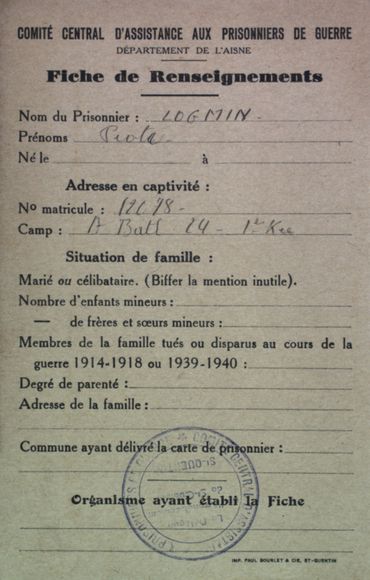 COMITÉ CENTRAL D'ASSISTANCE AUX PRISONNIERS DE GUERRE
DÉPARTEMENT DE L'AISNE
Fiche de Renseignements
Nom du Prisonnier : LOGMIN -
Prénoms Piotr
Né le à
Adresse en captivité :
No matricule :
Camp : A Batt 24 -
Situation de famille :
Marié ou célibataire. (Biffer la mention inutile).
Nombre d'enfants mineurs :
— de frères et sœurs mineurs :
Membres de la famille tués ou disparus au cours de la
guerre 1914-1918 ou 1939-1940 :
Degré de parenté :
Adresse de la famille :
Commune ayant délivré la carte de prisonnier :
Organisme ayant établi la Fiche
IMP. PAUL BOURLET & CIE, ST-QUENTIN